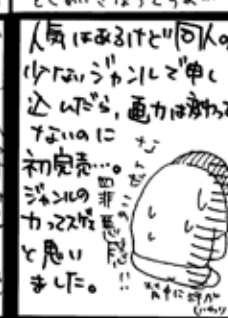 人気はあるけど同人の
少ないジャンルで申し
込んだら,画力は変わって
ないのに
初完売…。
ジャンルの
力ってスゲェ
と思い
ました。
なんだこの
罪悪感!!